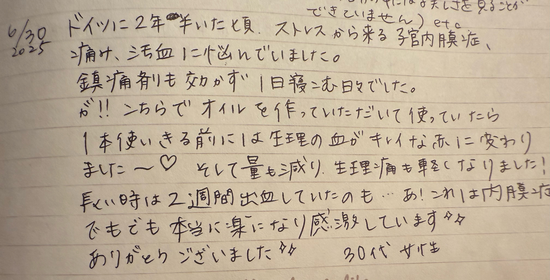 できていません) etc
6/30
2025
ドイツに2年半いた頃、ストレスから来る子宮内膜症、
痛み、汚血に悩んでいました。
鎮痛剤も効かず1日寝こむ日々でした。
が!! こちらでオイルを作っていただいて使っていたら
1本使いきる前には生理の血がキレイな赤に変わり
ました〜♡ そして量も減り、生理痛も軽くなりました!
長い時は2週間出血していたのも…あ!これは内膜症
でもでも本当に楽になり感激しています✨
ありがとうございました✨ 30代 女性